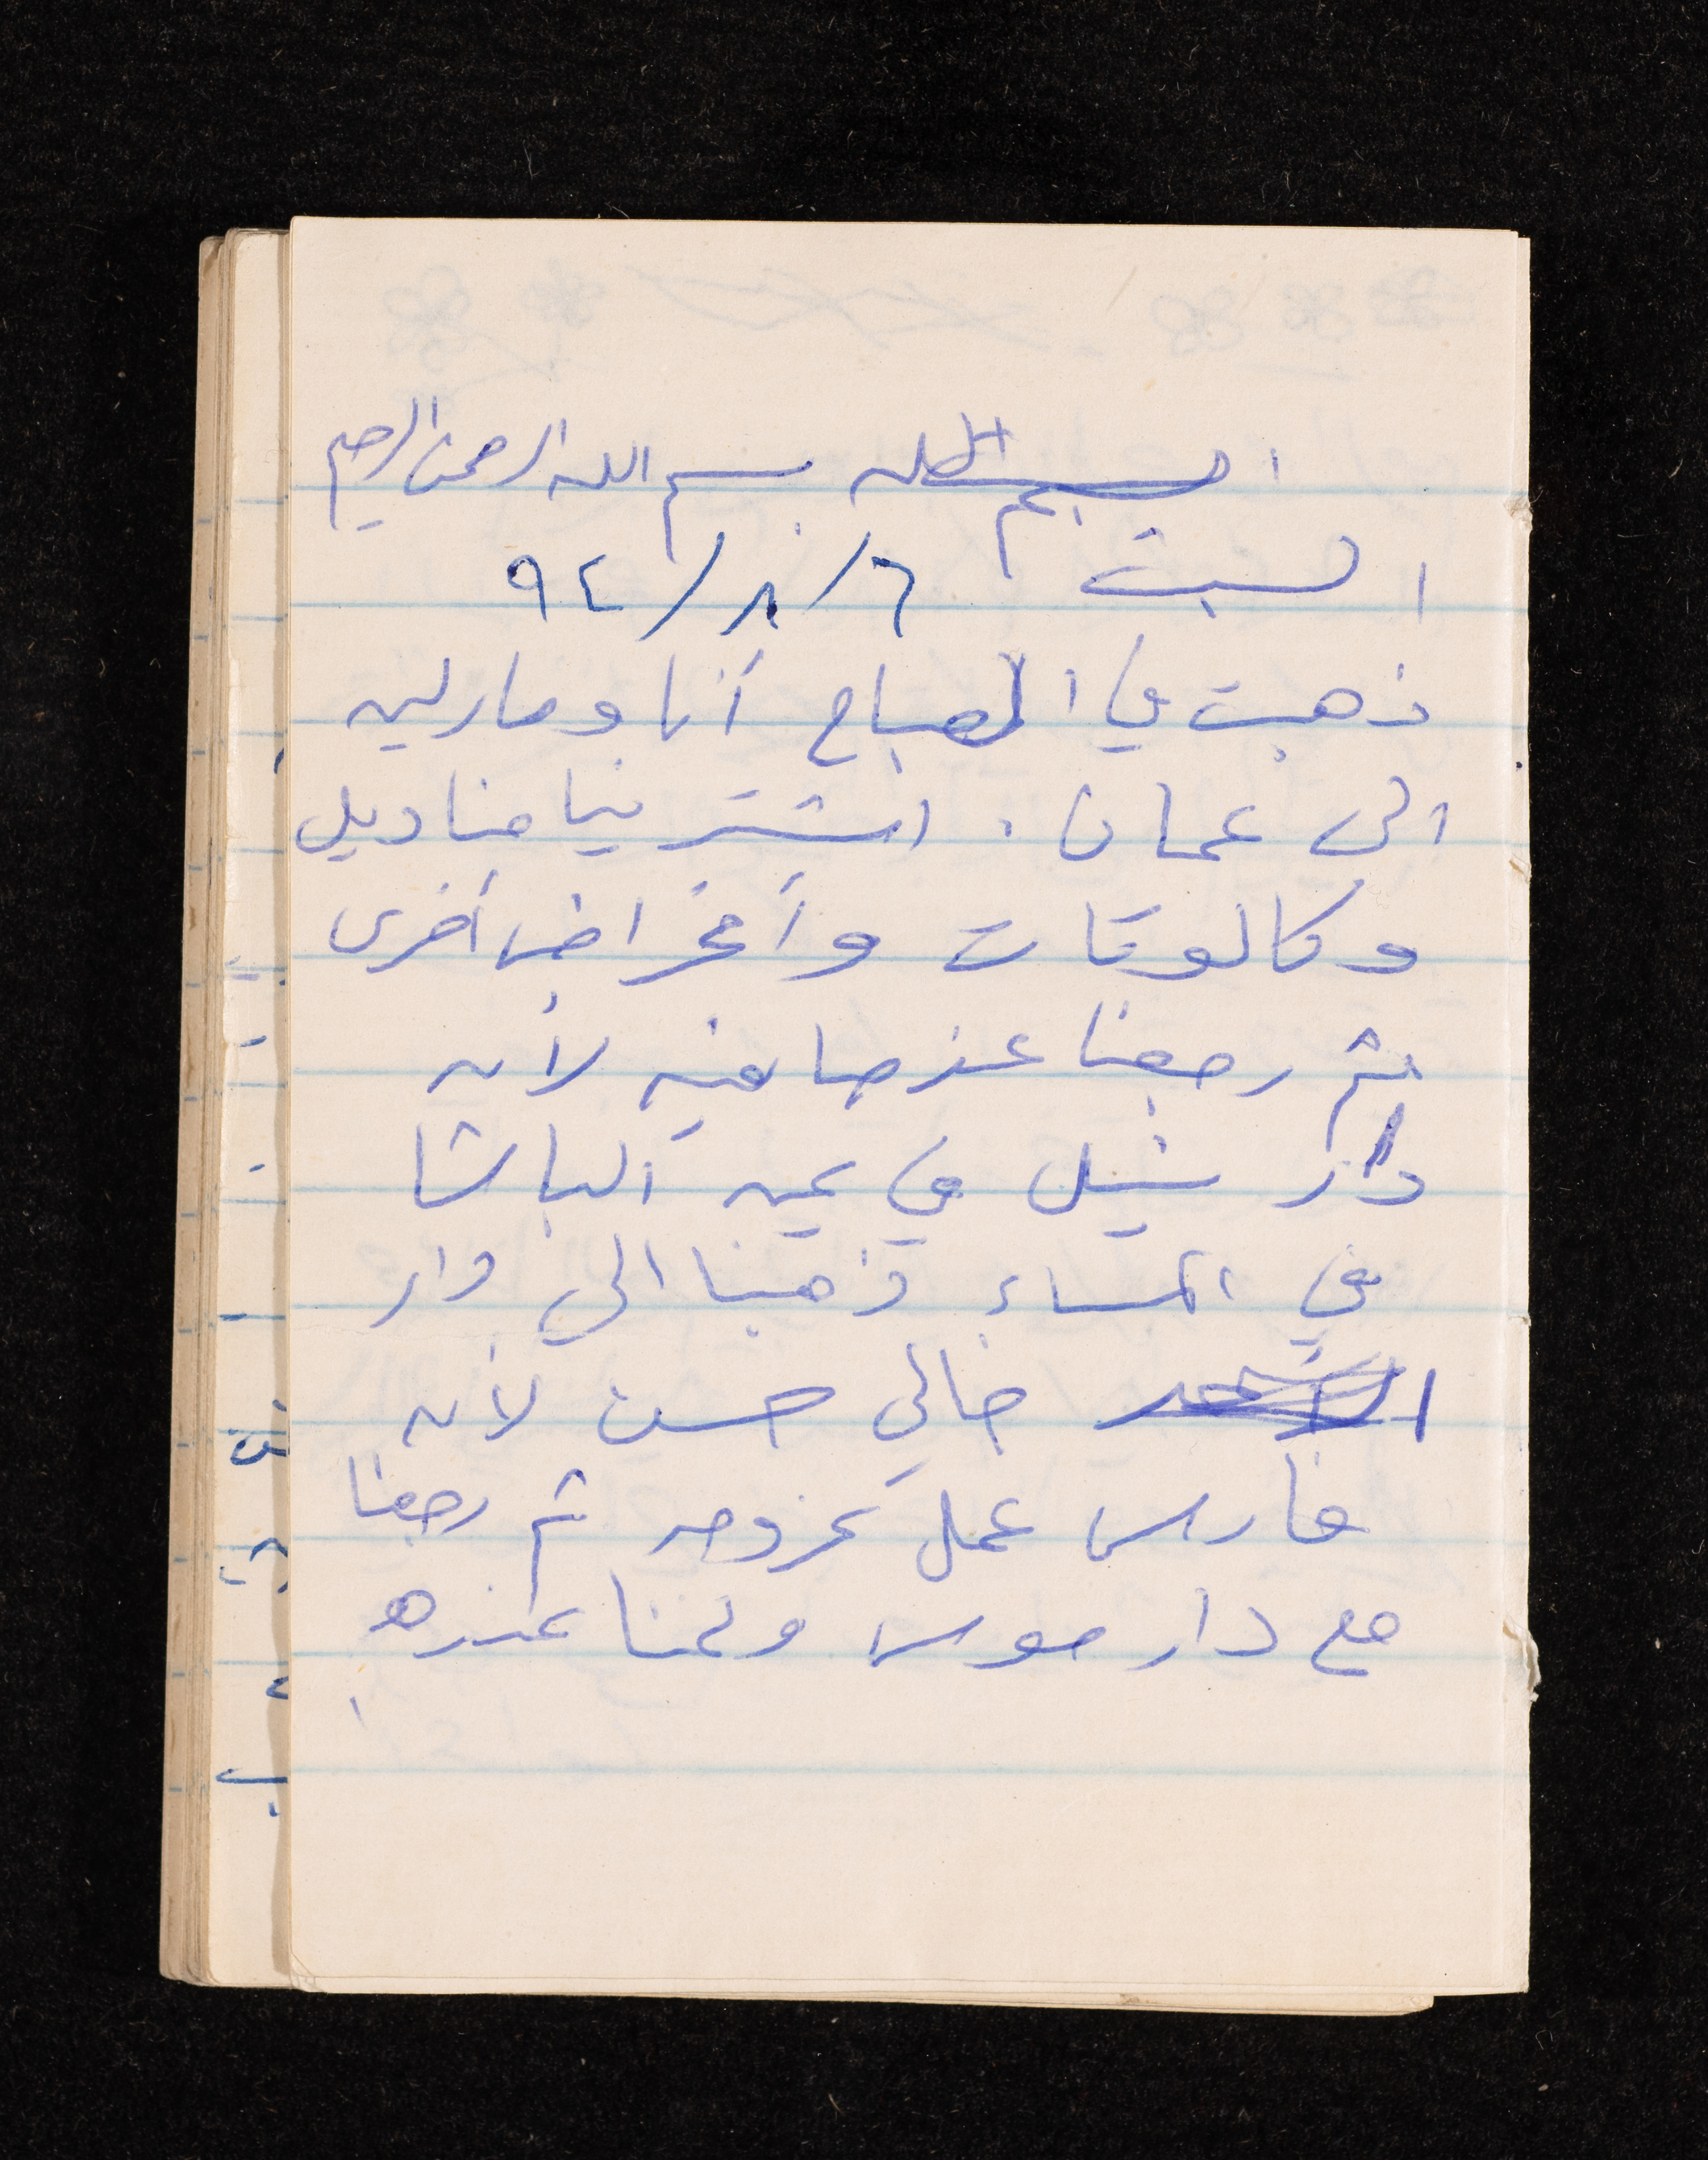 بسم الله الرحمن الرحيم
السبت ٦/٨/٩٤
ذهبت في الصباح أنا ومارلين
الى عمان. اشترينا مناديل
وكالوتات وأغراض أخرى
ثم رجعنا عند صافيه لأن
دار نبيل في عين الباشا
في المساء ذهبنا الى دار
خالي حسن لأن
فارس عمل عزومه ثم رجعنا
مع دار موسى ونمنا عندهم